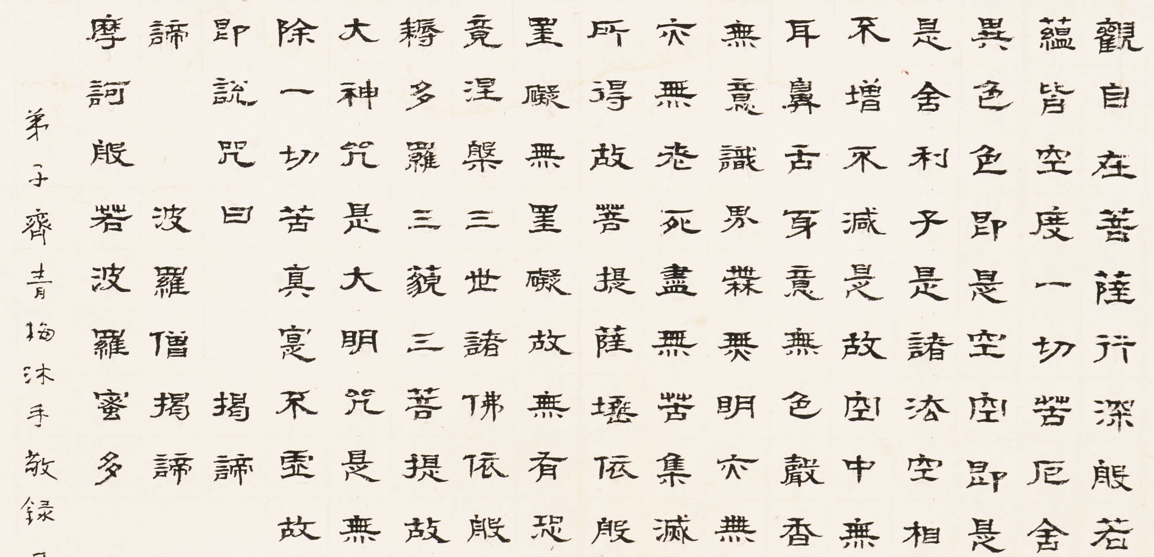 觀自在菩薩行深般若
蘊皆空度一切苦厄舍
異色色即是空空即是
是舍利子是諸法空相
不增不減是故空中無
耳鼻舌身意無色聲香
無意識界無無明亦無
亦無老死盡無苦集滅
所得故菩提薩埵依般
罣礙無罣礙故無有恐
竟涅槃三世諸佛依般
耨多羅三藐三菩提故
大神咒是大明咒是無
除一切苦真寔不虛故
即說咒曰 揭諦
諦 波羅僧揭諦
摩訶般若波羅蜜多
弟子齊青梅沐手敬録